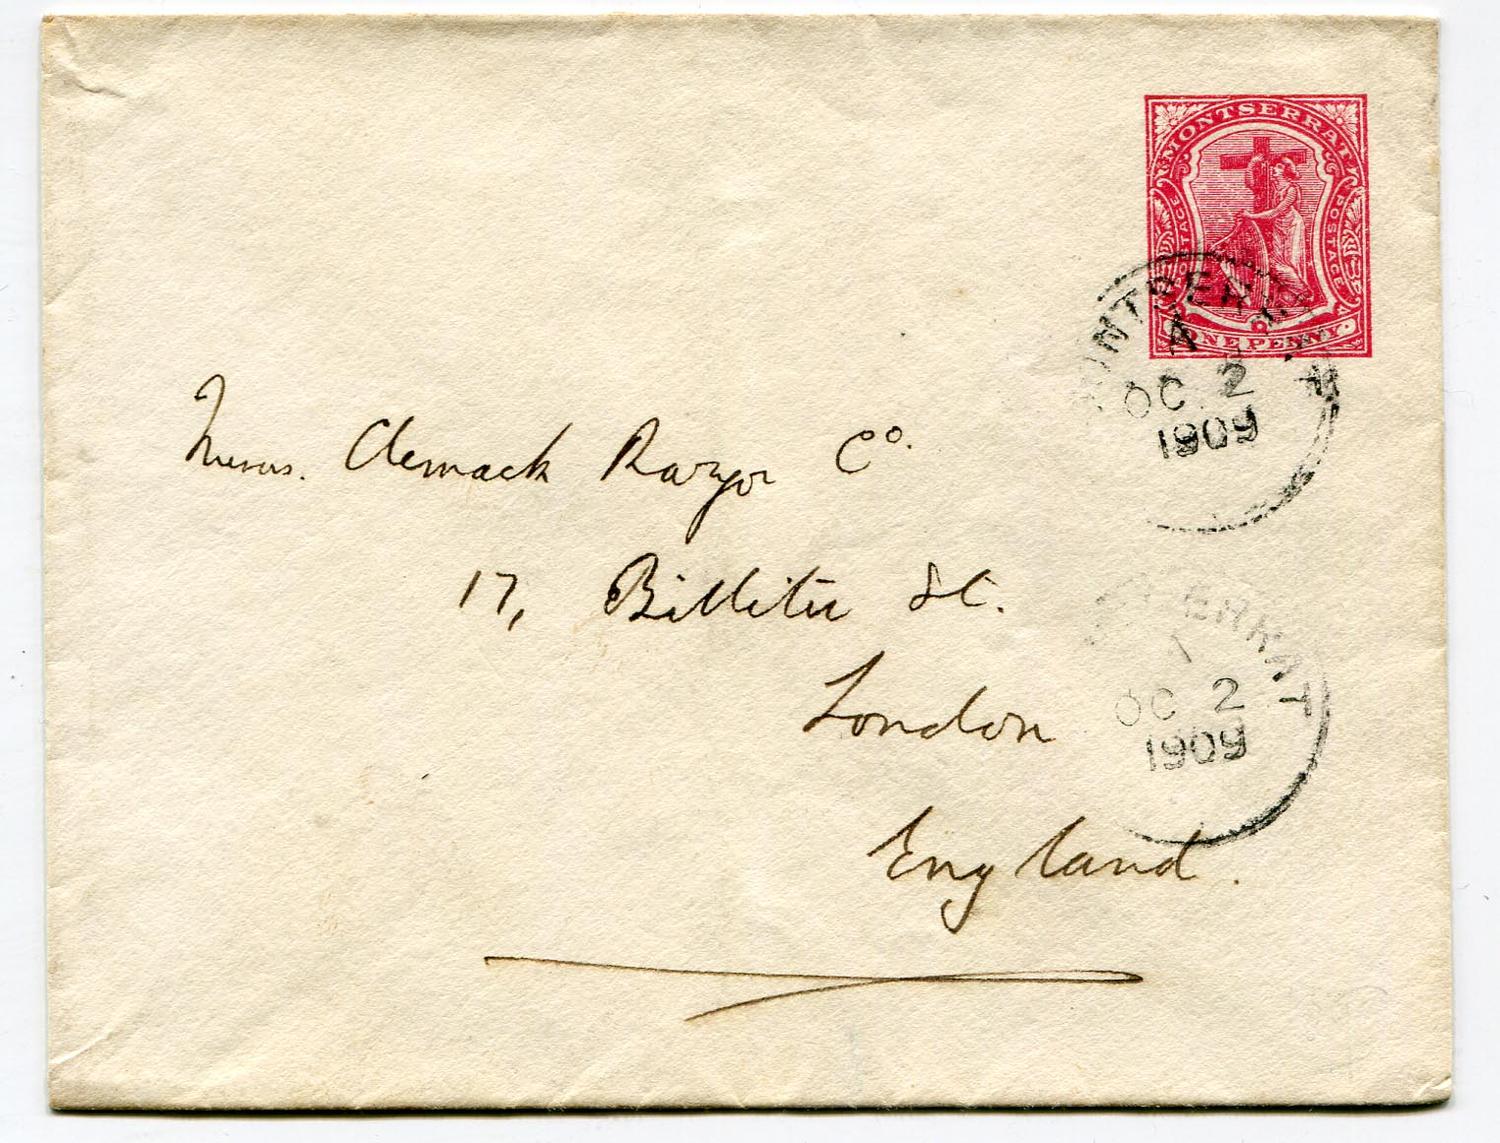 MONTSERRAT
POSTAGE
POSTAGE
ONE PENNY
MONTSERRAT
A
OC 2
1909
Messrs. Clemack Razor Co.
17, Billiter St.
London
England.
OC 2
1909